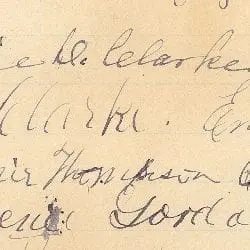 e D. Clarke
Clarke. Em
Thompson
Gordo